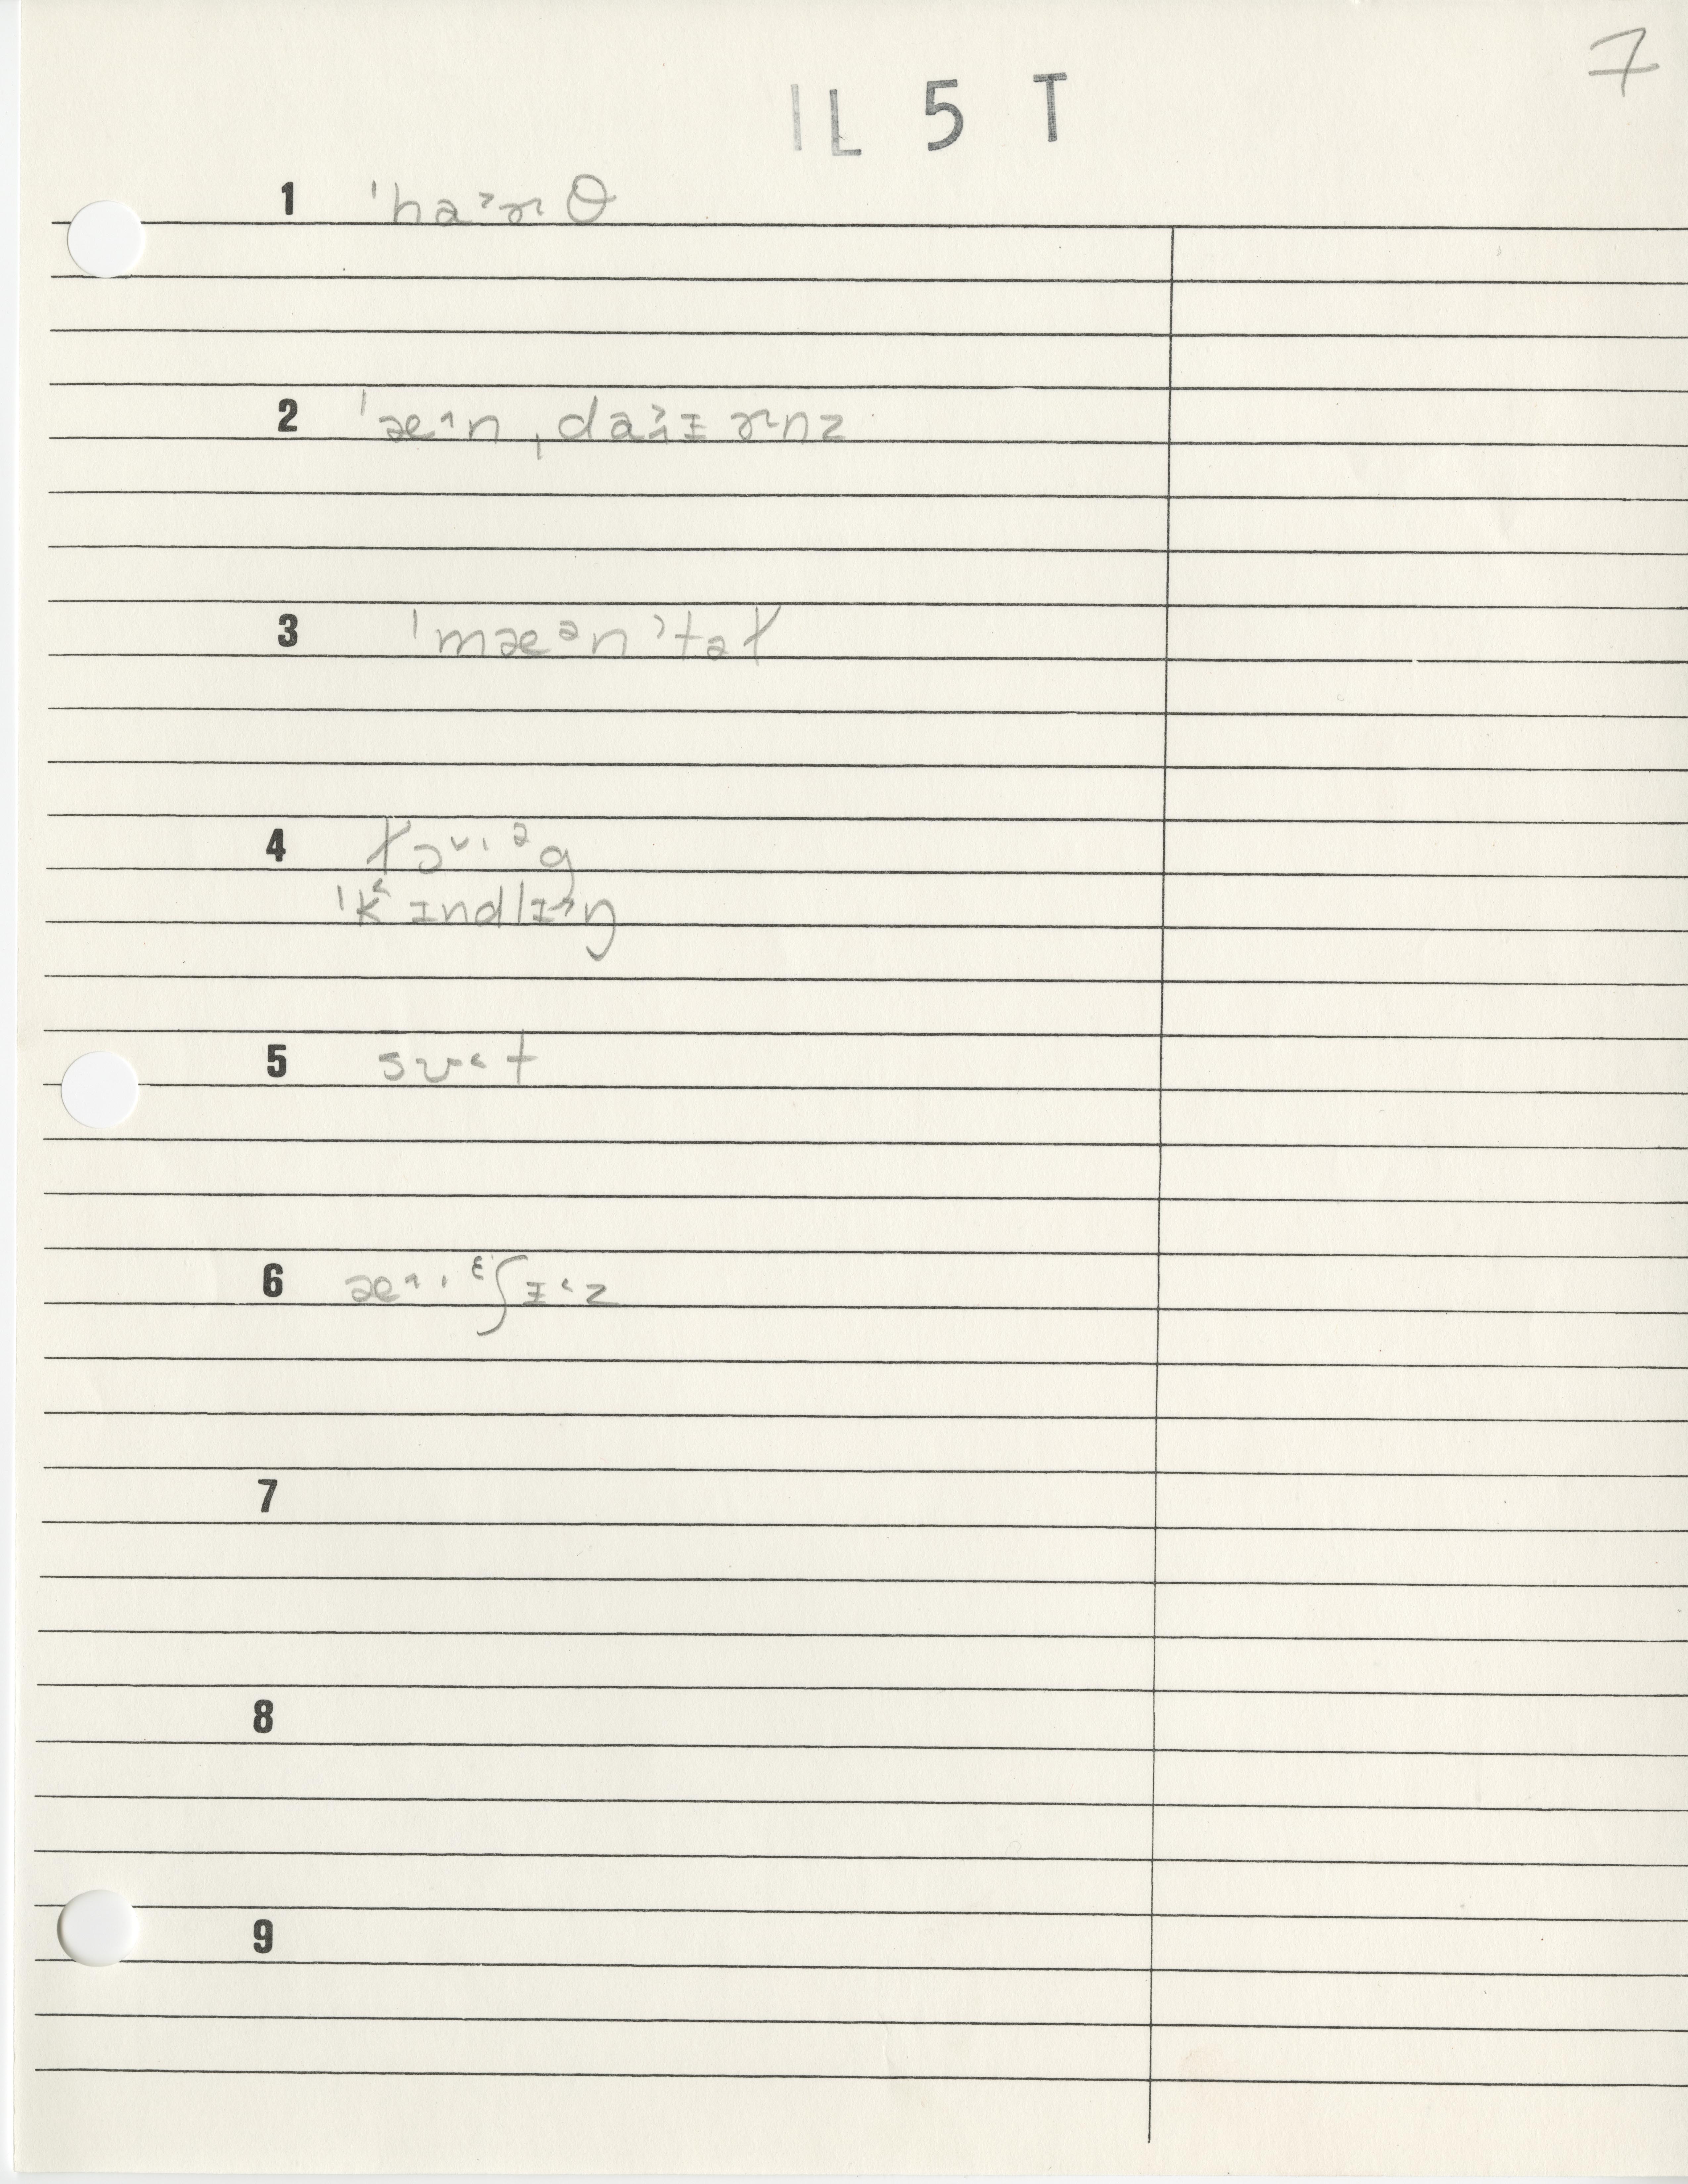 7
IL 5 T
1 ˈha˃ɚθ
2 ˈæ˄n ˌda˃˄ɪɚnz
3 ˈmæᵊn˒təɫ
4 ɫɔᵛ˔ᵊg
ˈk˂ɪndlɪ˃ŋ
5 sᴜ˂t
6 æ˄˔ᵋʃɪ˂z
7
8
9